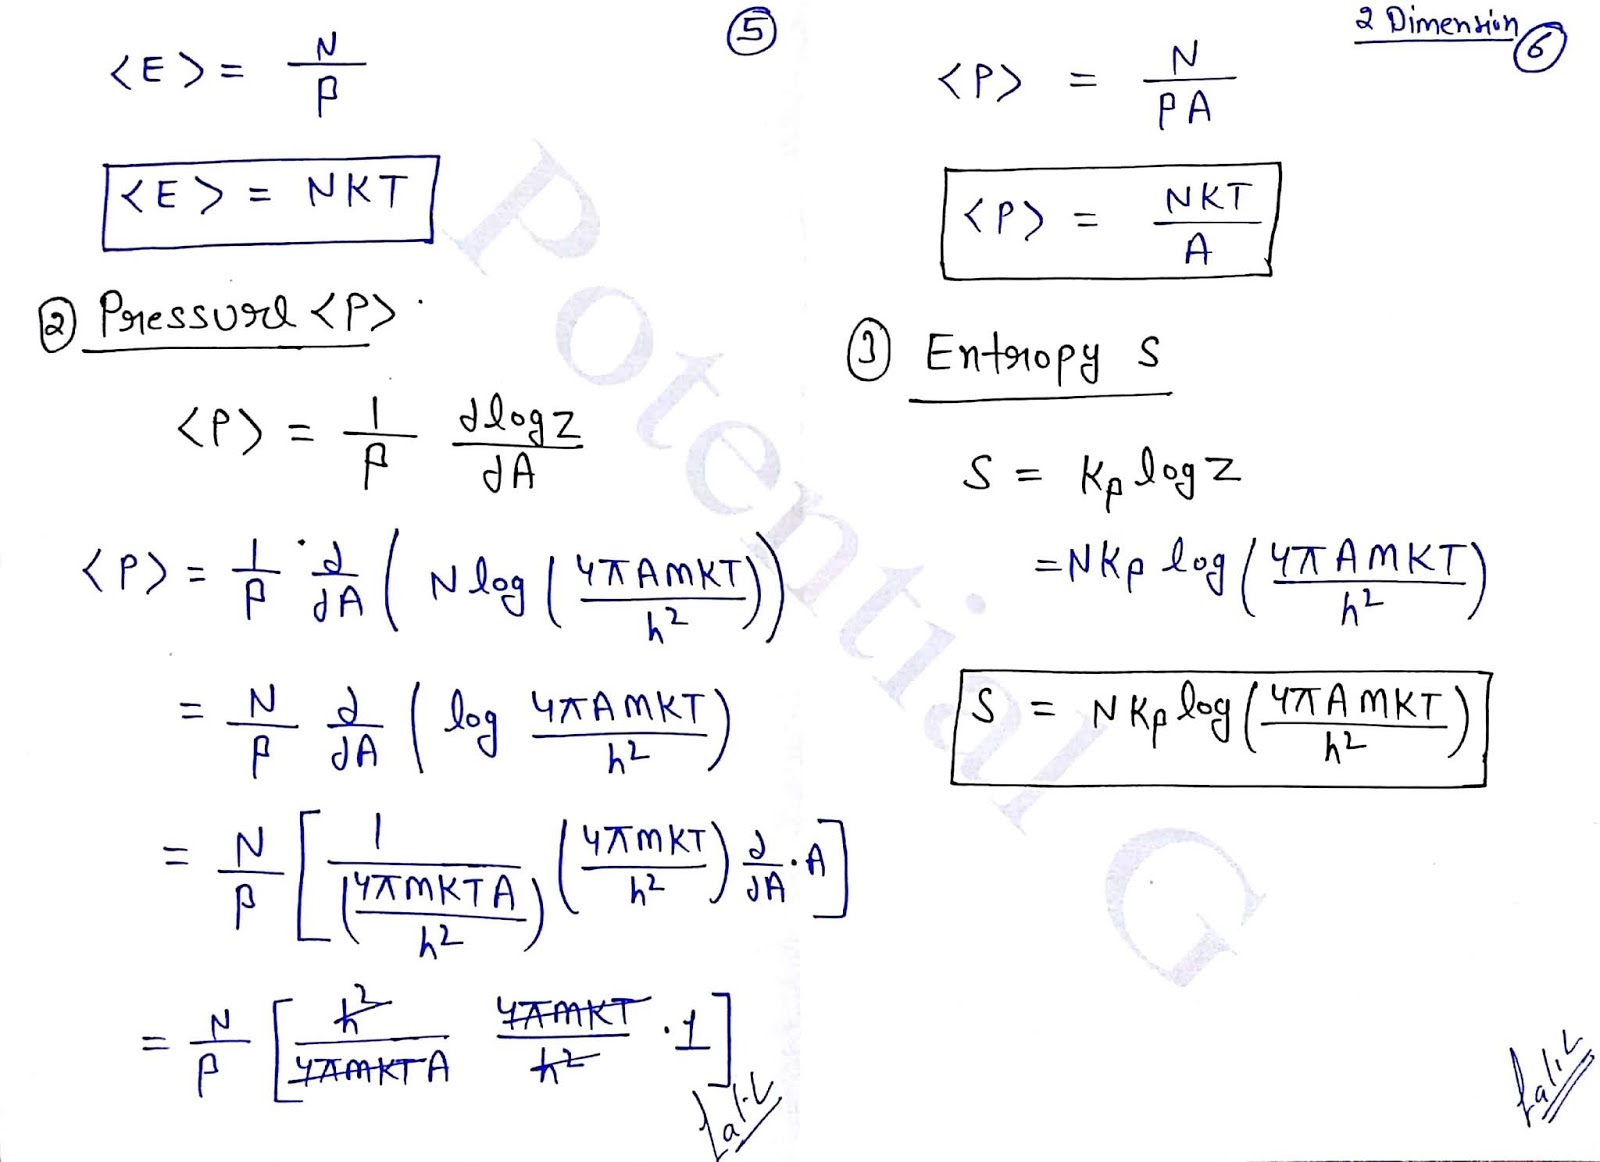 ⑤
<E> = N/β
<E> = NKT
② Pressure <P>
<P> = 1/β ∂logZ/∂A
<P> = 1/β · ∂/∂A ( N log ( 4πAMKT/h² ) )
= N/β ∂/∂A ( log 4πAMKT/h² )
= N/β [ 1/(4πMKTA/h²) ( 4πMKT/h² ) ∂/∂A · A ]
= N/β [ h²/4πMKTA 4πMKT/h² · 1 ]
Lalit
2 Dimension ⑥
<P> = N/βA
<P> = NKT/A
③ Entropy S
S = Kβ log Z
= NKβ log ( 4πAMKT/h² )
S = NKβ log ( 4πAMKT/h² )
Lalit
Potential G